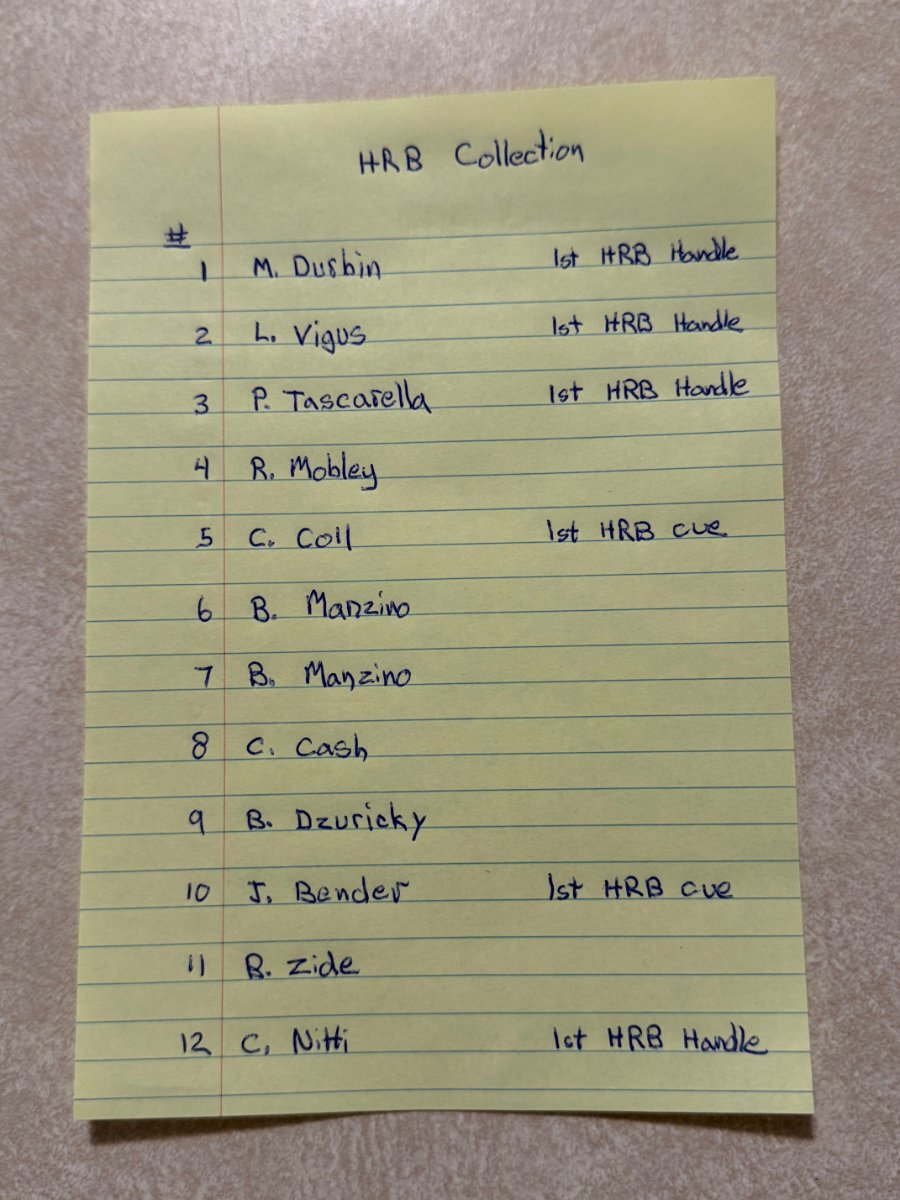 HRB Collection
#
1 M. Durbin 1st HRB Handle
2 L. Vigus 1st HRB Handle
3 P. Tascarella 1st HRB Handle
4 R. Mobley
5 C. Coil 1st HRB cue
6 B. Manzino
7 B. Manzino
8 C. Cash
9 B. Dzuricky
10 J. Bender 1st HRB cue
11 B. Zide
12 C. Nitti 1st HRB Handle